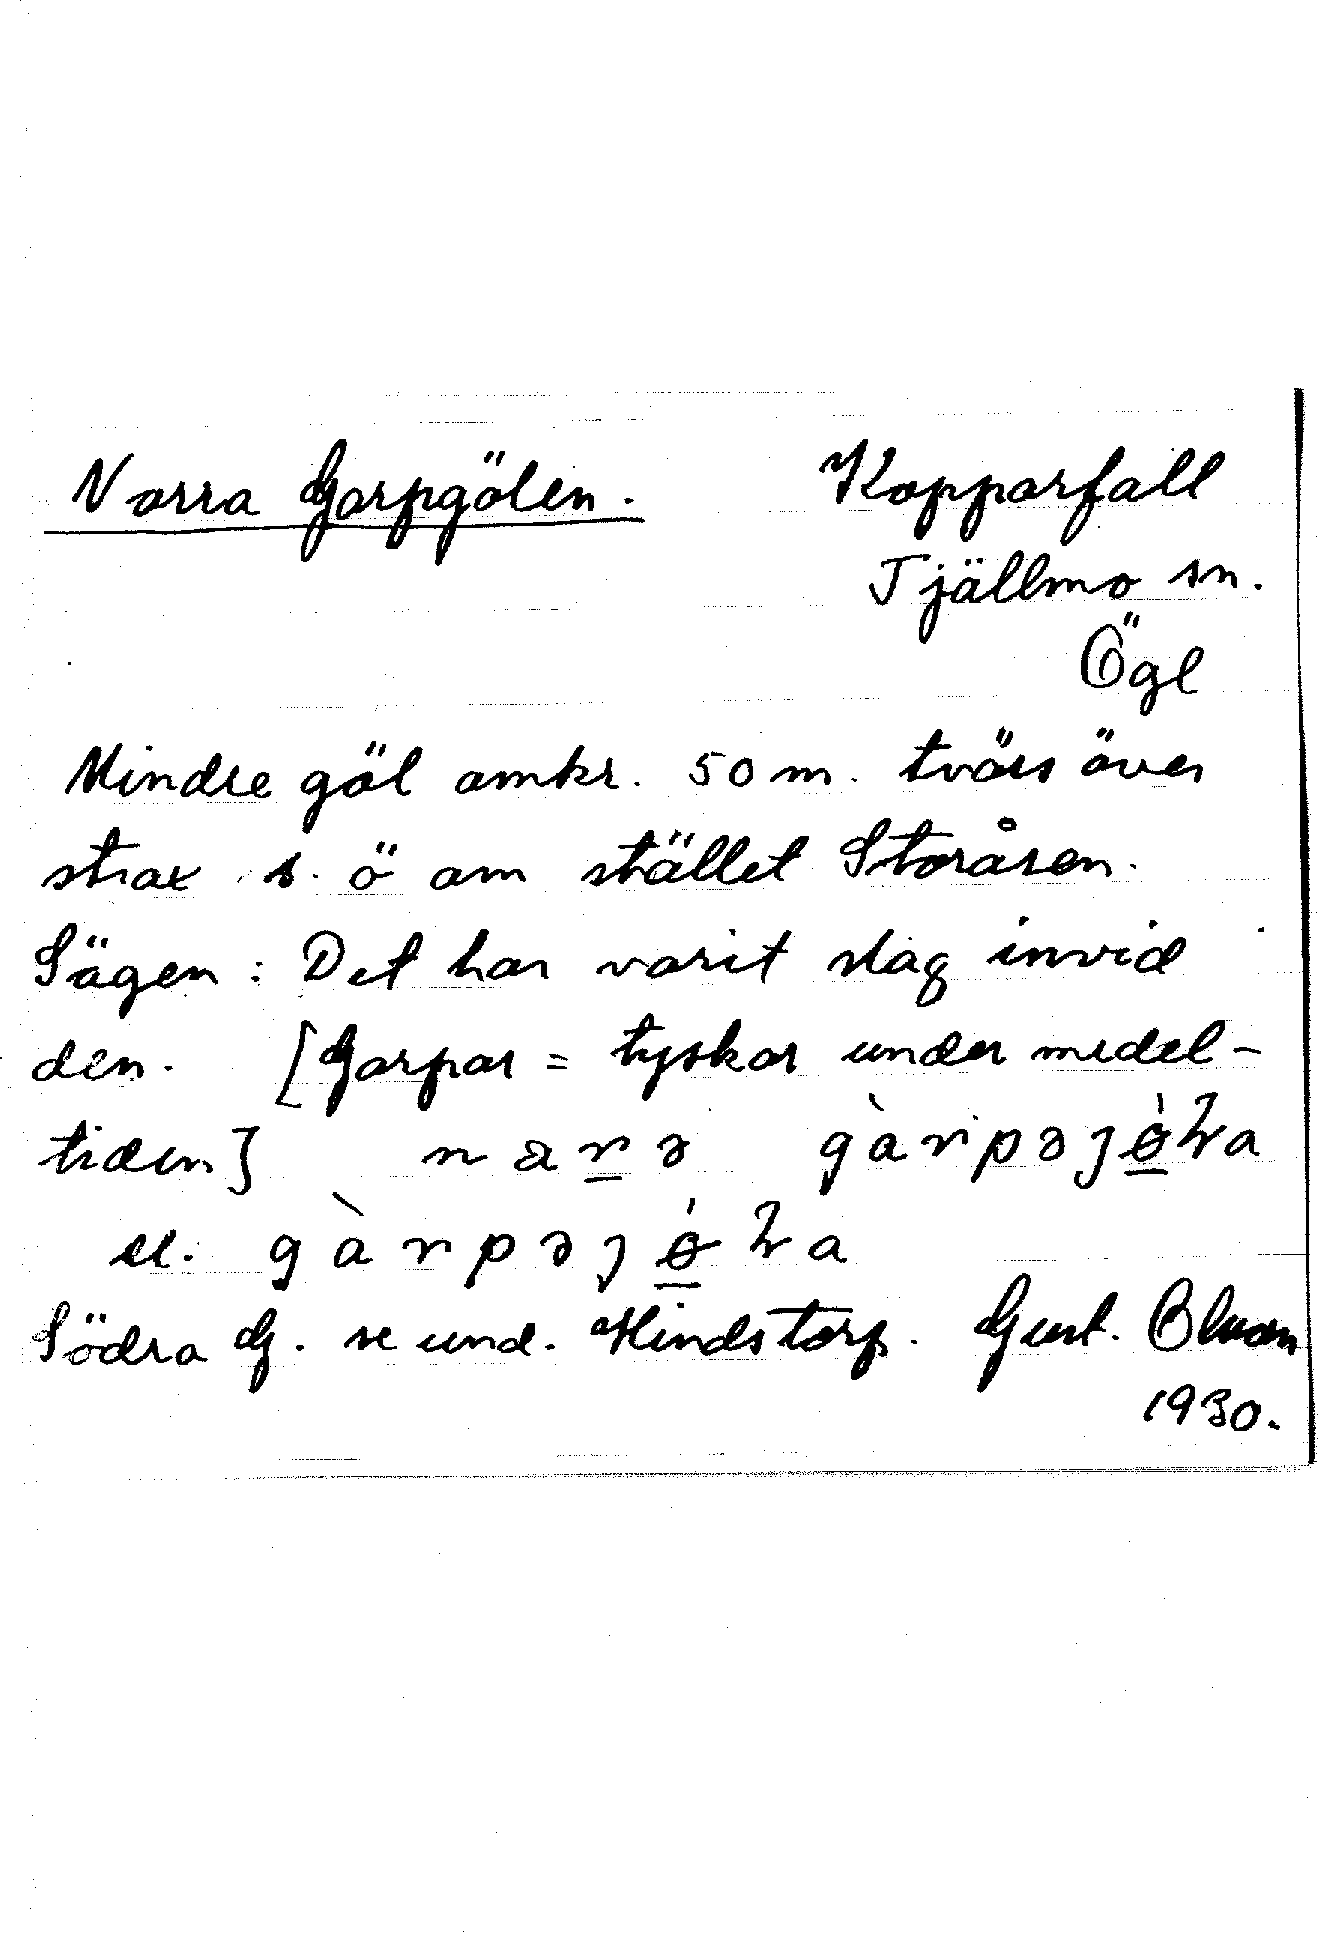 Norra Garpgölen. Kopparfall
Tjällmo sn.
Ögl
Mindre göl omkr. 50 m. tvärs över
strax s. ö om stället Storåsen.
Sägen: Det har varit slag invid
den. [Garpar = tyskar under medel-
tiden] narə gàrpəȷøʹɽa
el. gàrpəȷøʹɽa
Södra G. se und. Hindstorp. Gust. Blman
1930.